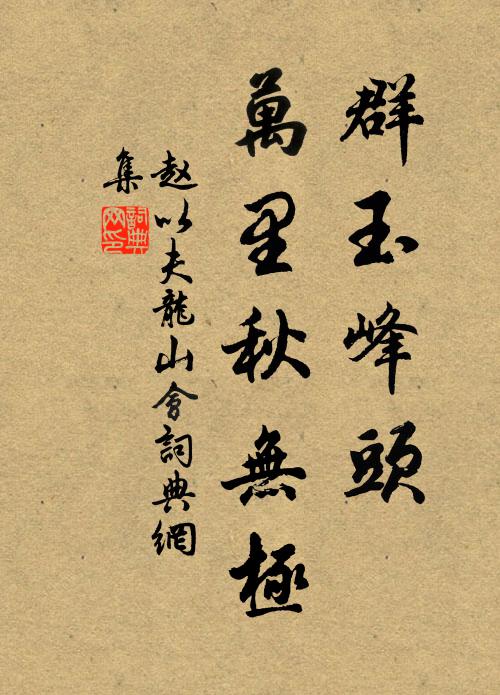 群玉峰頭
萬里秋無極
赵以夫龍山會詞典網
集
詞典网印